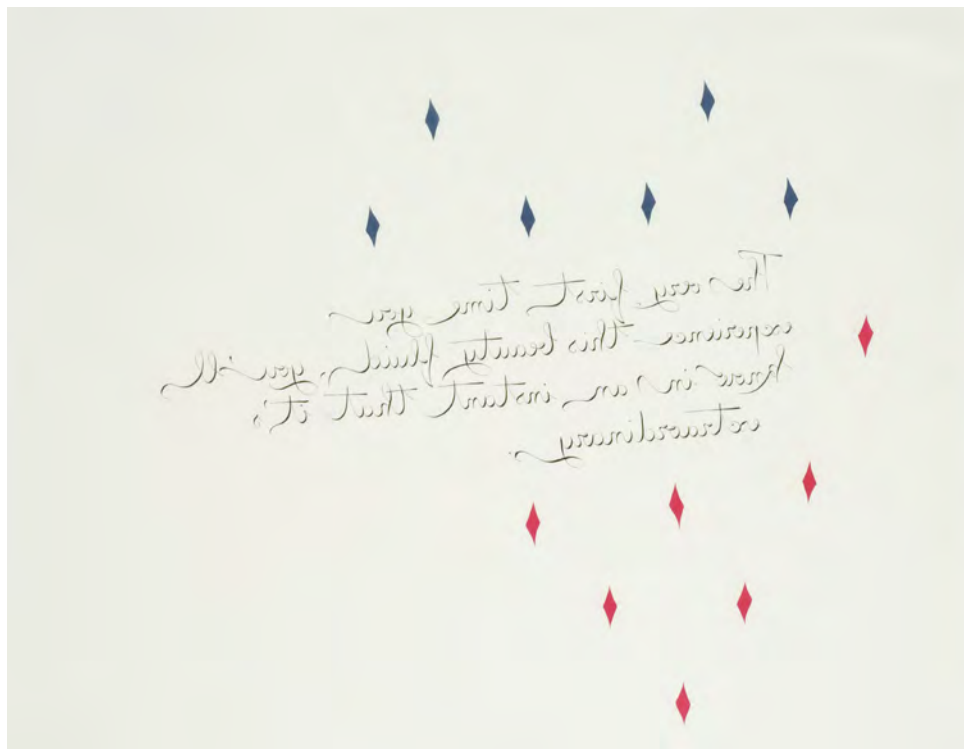 The very first time you
experience this beauty fluid, you'll
know in an instant that it's
extraordinary.